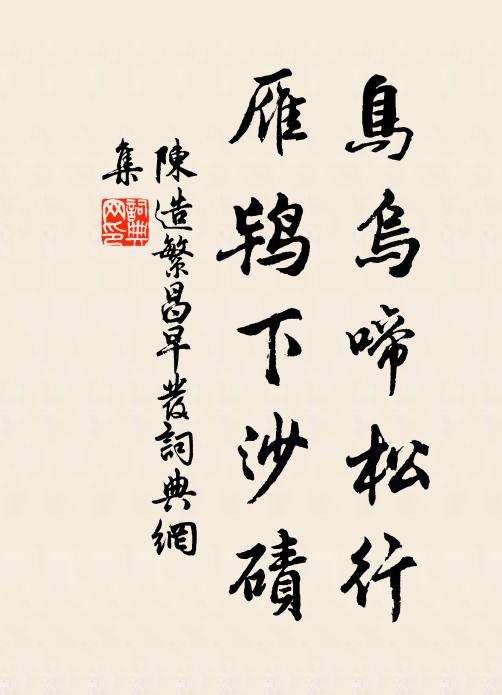 鳥烏啼松行
雁鴇下沙磧
陳造繁昌早發詞典網
集
詞典
网印